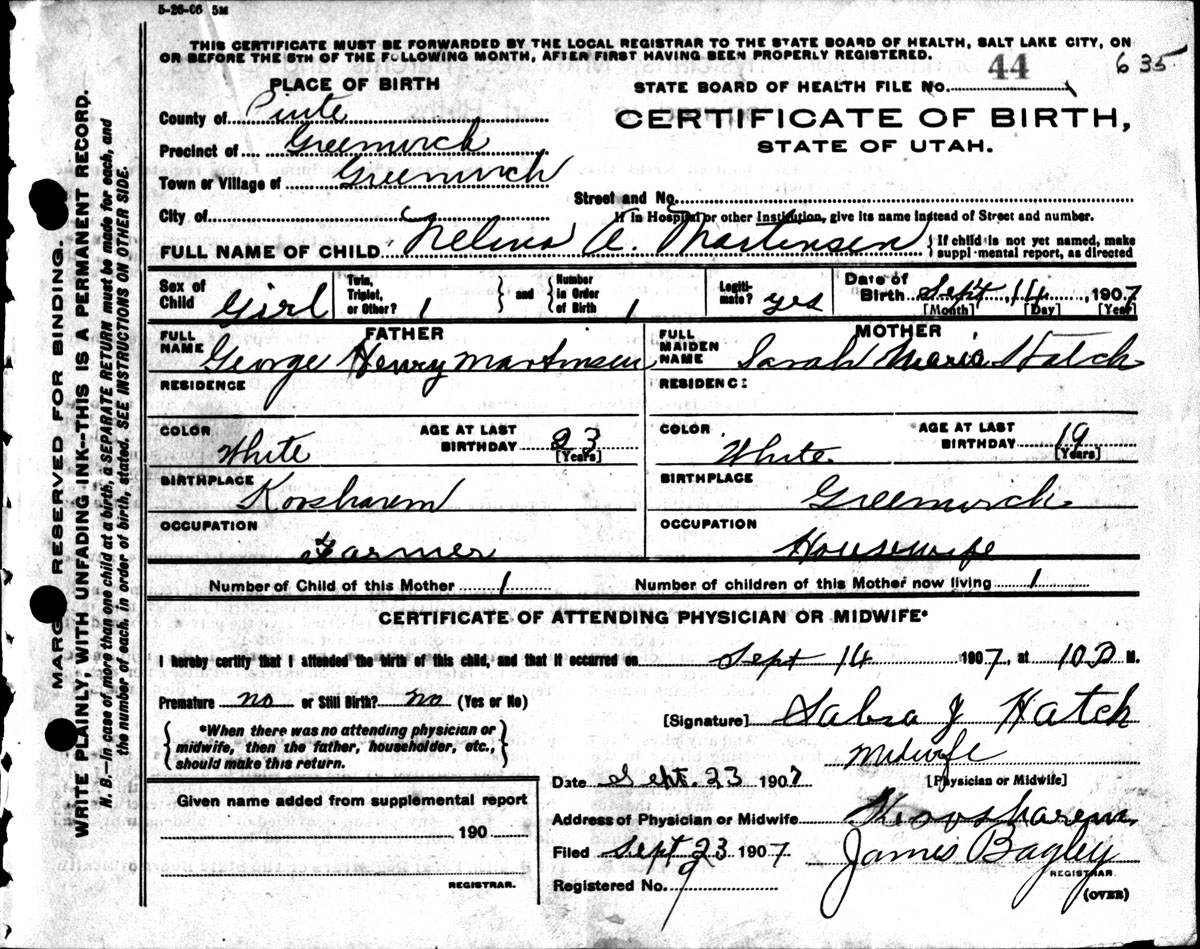 5-26-06 5M
THIS CERTIFICATE MUST BE FORWARDED BY THE LOCAL REGISTRAR TO THE STATE BOARD OF HEALTH, SALT LAKE CITY, ON
OR BEFORE THE 5TH OF THE FOLLOWING MONTH, AFTER FIRST HAVING BEEN PROPERLY REGISTERED.
44
635
PLACE OF BIRTH
STATE BOARD OF HEALTH FILE NO.
County of Piute
CERTIFICATE OF BIRTH,
Precinct of Greenwich
STATE OF UTAH.
Town or Village of Greenwich
Street and No.
City of
If in Hospital or other Institution, give its name instead of Street and number.
FULL NAME OF CHILD Nelina A. Martensen { If child is not yet named, make
suppl mental report, as directed
Sex of Child Girl
Twin, Triplet, or Other? 1 } and { Number in Order of Birth 1
Legiti-mate? yes
Date of Birth Sept 14, 1907
[Month] [Day] [Year]
FATHER
MOTHER
FULL NAME George Henry Martinsen
FULL MAIDEN NAME Sarah Marie Hatch
RESIDENCE
RESIDENCE
COLOR White AGE AT LAST BIRTHDAY 23 [Years]
COLOR White AGE AT LAST BIRTHDAY 19 [Years]
BIRTHPLACE Koosharem
BIRTHPLACE Greenwich
OCCUPATION Farmer
OCCUPATION Housewife
Number of Child of this Mother 1
Number of children of this Mother now living 1
CERTIFICATE OF ATTENDING PHYSICIAN OR MIDWIFE*
I hereby certify that I attended the birth of this child, and that it occurred on Sept 14 1907, at 10 P M.
Premature no or Still Birth? no (Yes or No)
[Signature] Sabra J Hatch
{ *When there was no attending physician or
midwife, then the father, householder, etc.,
should make this return. }
Midwife
Date Sept. 23 1907
[Physician or Midwife]
Given name added from supplemental report
Address of Physician or Midwife Koosharem.
190
Filed Sept 23 1907 James Bagley
REGISTRAR.
REGISTRAR.
Registered No. 9
(OVER)
MARGIN RESERVED FOR BINDING.
WRITE PLAINLY, WITH UNFADING INK—THIS IS A PERMANENT RECORD.
N. B.—In case of more than one child at a birth, a SEPARATE RETURN must be made for each, and
the number of each, in order of birth, stated. SEE INSTRUCTIONS ON OTHER SIDE.